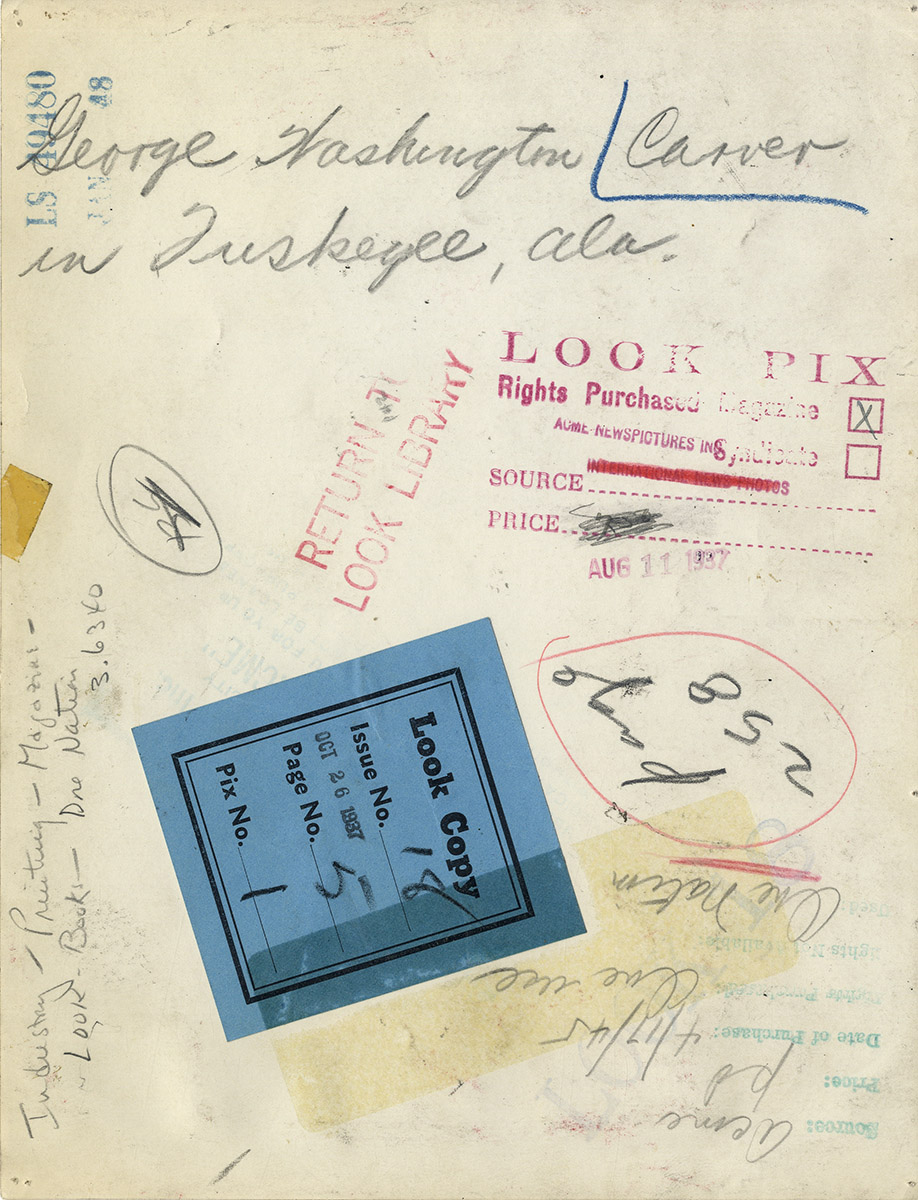 LS 40480
JAN 48
George Washington Carver
in Tuskegee, Ala.
LOOK PIX
Rights Purchased Magazine X
ACME NEWSPICTURES INC
Syndicate
INTERNATIONAL NEWS PHOTOS
SOURCE
PRICE
AUG 11 1937
RETURN TO
LOOK LIBRARY
Industry - Printing - Magazines -
- LOOK - Books - One Nation
3.6340
Look Copy
Issue No.
OCT 26 1937
Page No. 5
Pix No. 1
258
One Nation
One use
Used:
Rights Available:
Rights Purchased:
Date of Purchase: 4/17/45
Price: pd
Source: Acme